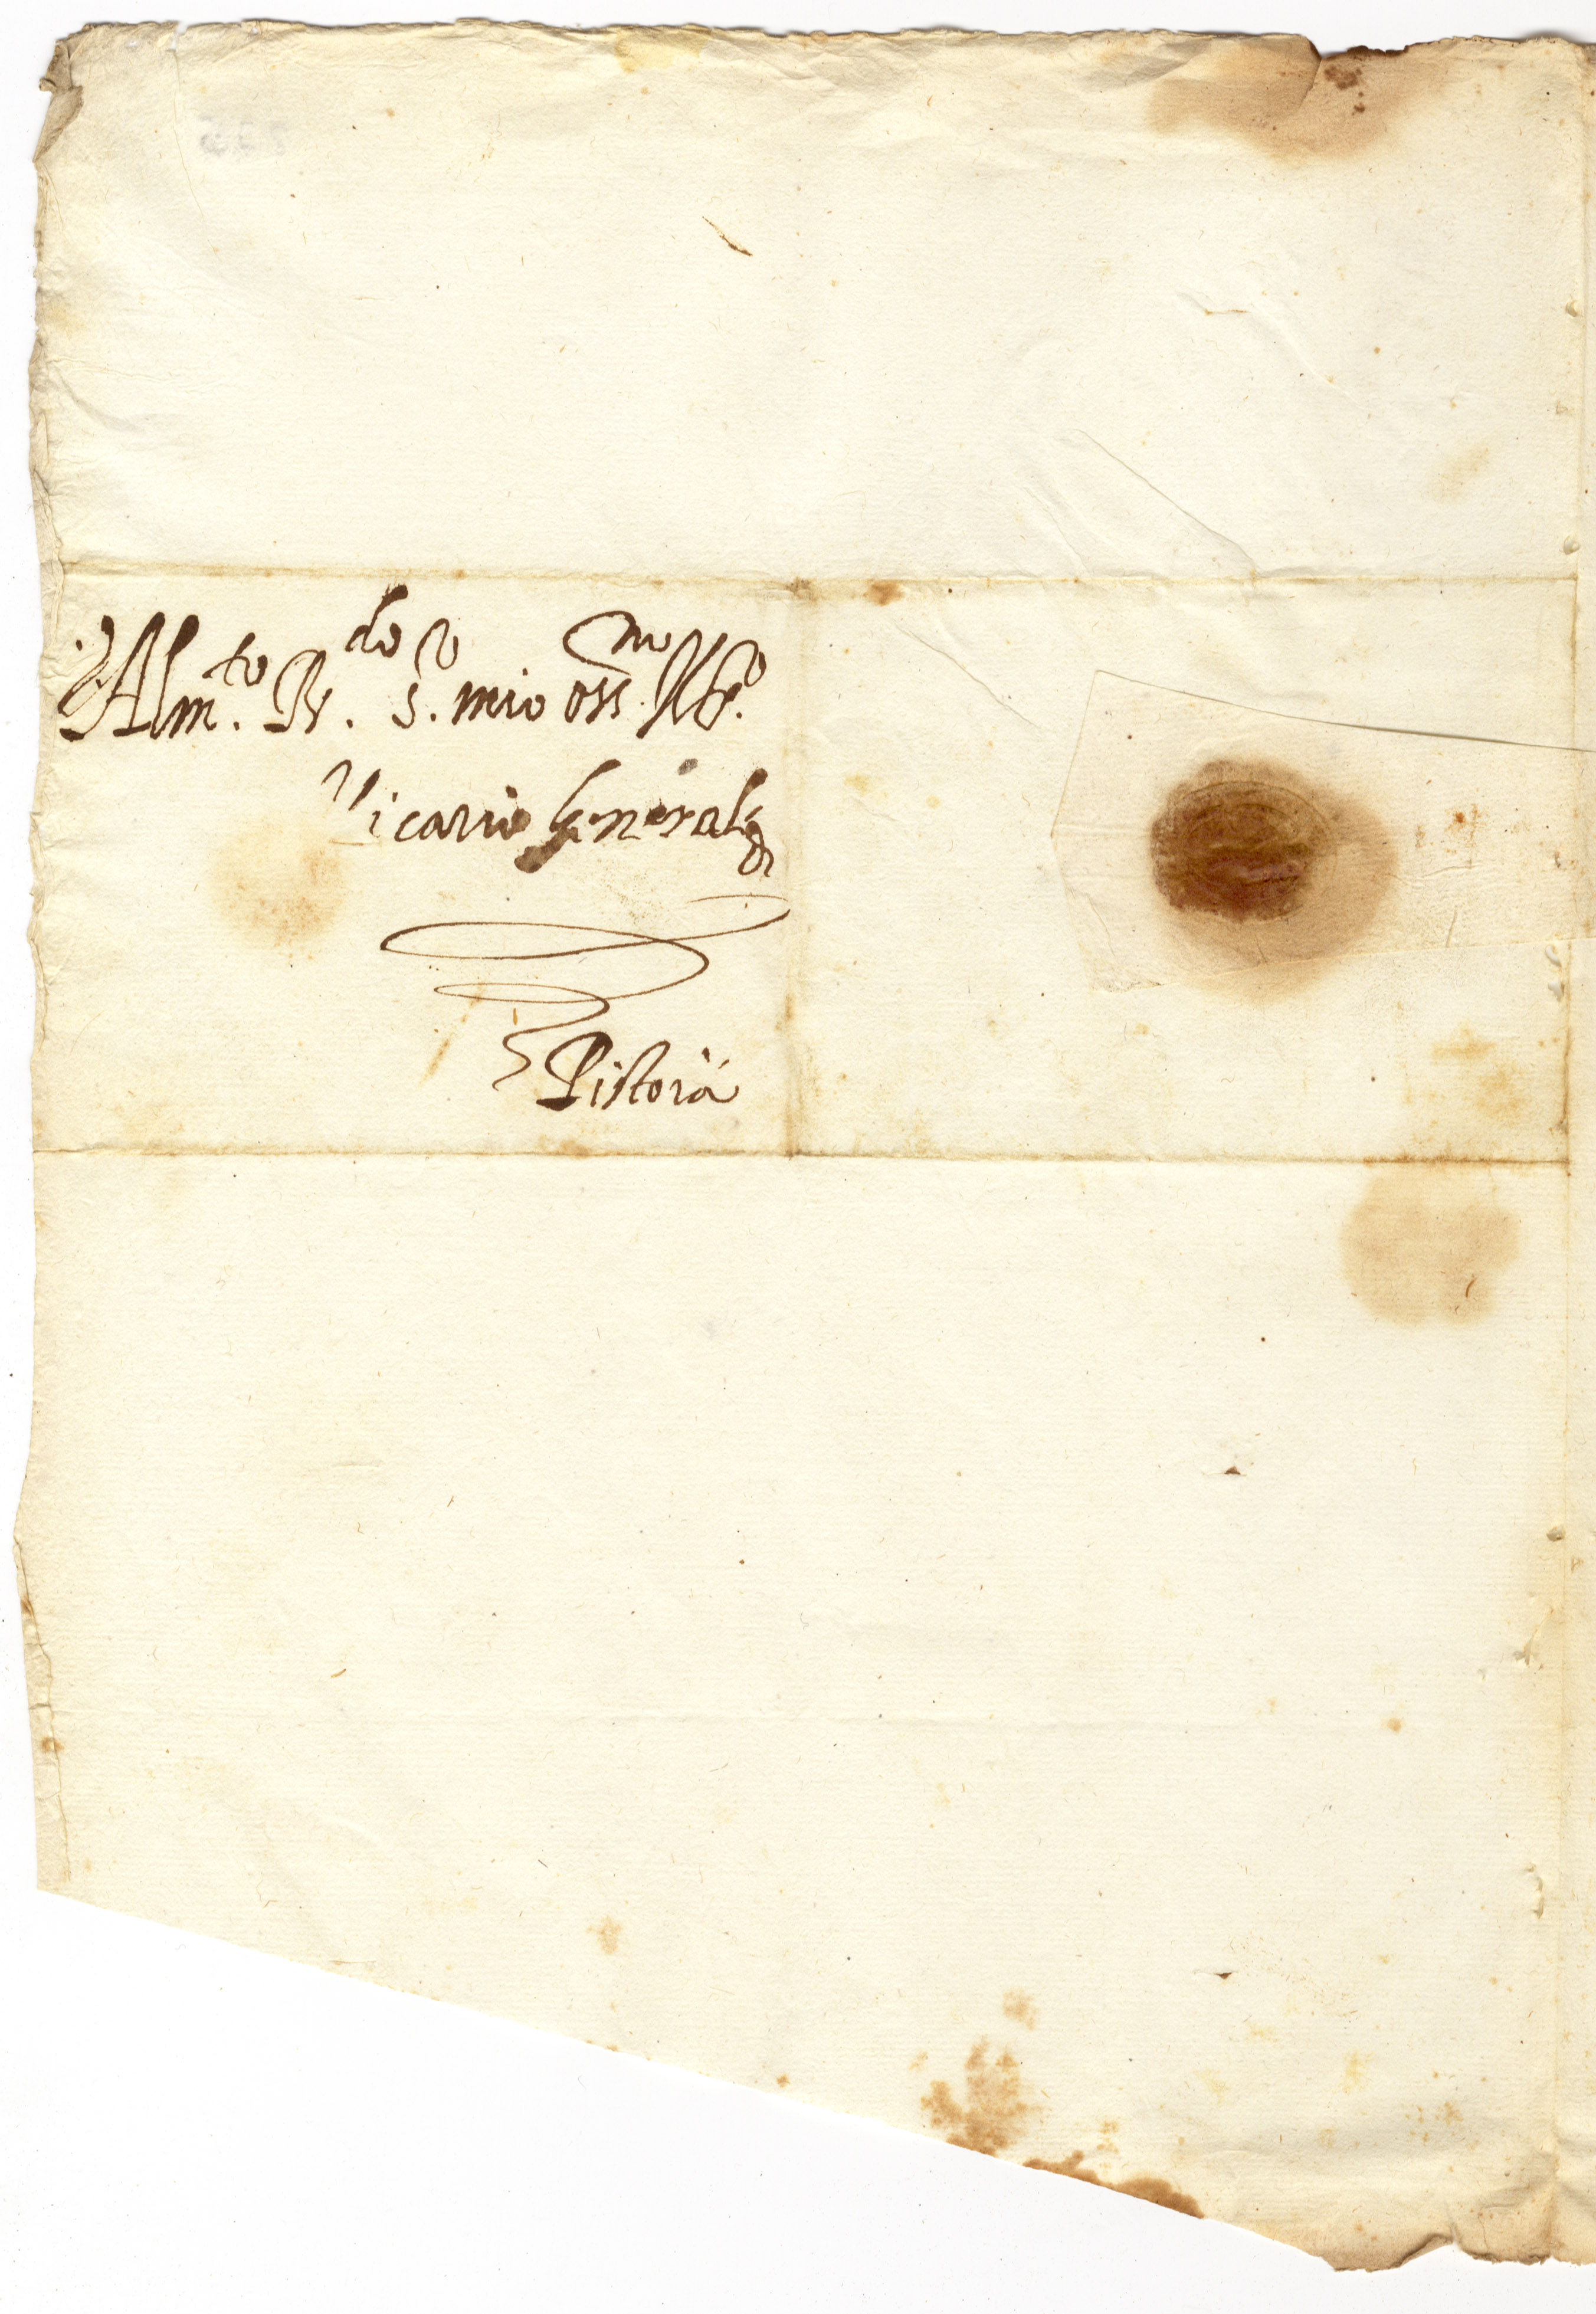 Al m.to R.do S.re mio oss.mo Il S.re
Vicario Generale di
Pistoia